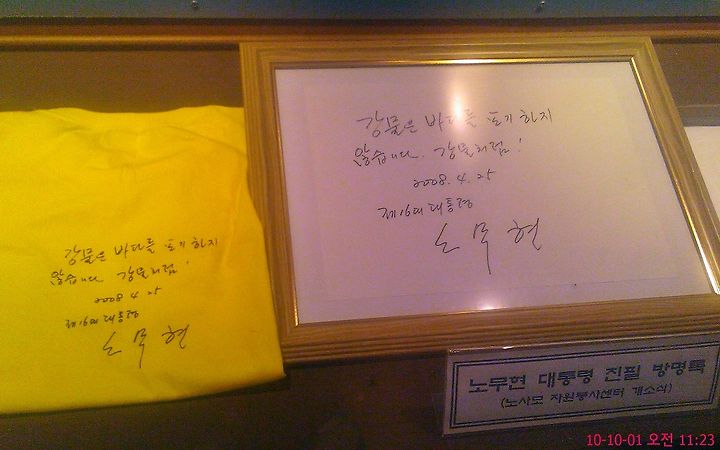 강물은 바다를 포기하지
않습니다. 강물처럼!
2008. 4. 25
제16대 대통령
노무현
강물은 바다를 포기하지
않습니다. 강물처럼!
2008. 4. 25
제16대 대통령
노무현
노무현 대통령 진필 방명록
(노사모 자원봉사센터 개소식)
10-10-01 오전 11:23